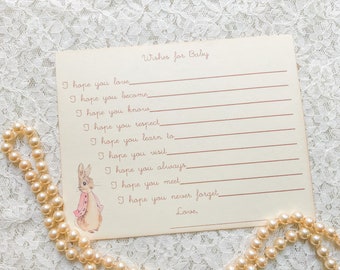 Wishes for Baby
I hope you love
I hope you become
I hope you know
I hope you respect
I hope you learn to
I hope you visit
I hope you always
I hope you meet
I hope you never forget
Love,